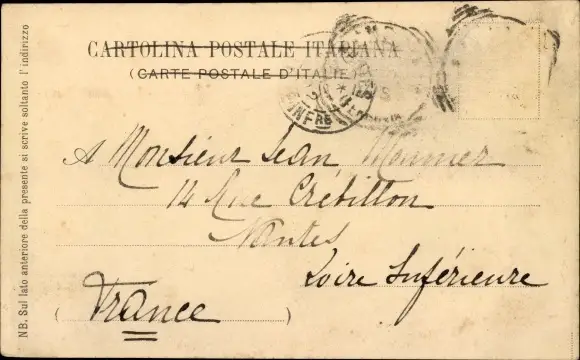 CARTOLINA POSTALE ITALIANA
(CARTE POSTALE D'ITALIE)
A Monsieur Jean
14 Rue Crébillon
Nantes
Loire Inférieure
(France)
NB. Sul lato anteriore della presente si scrive soltanto l'indirizzo